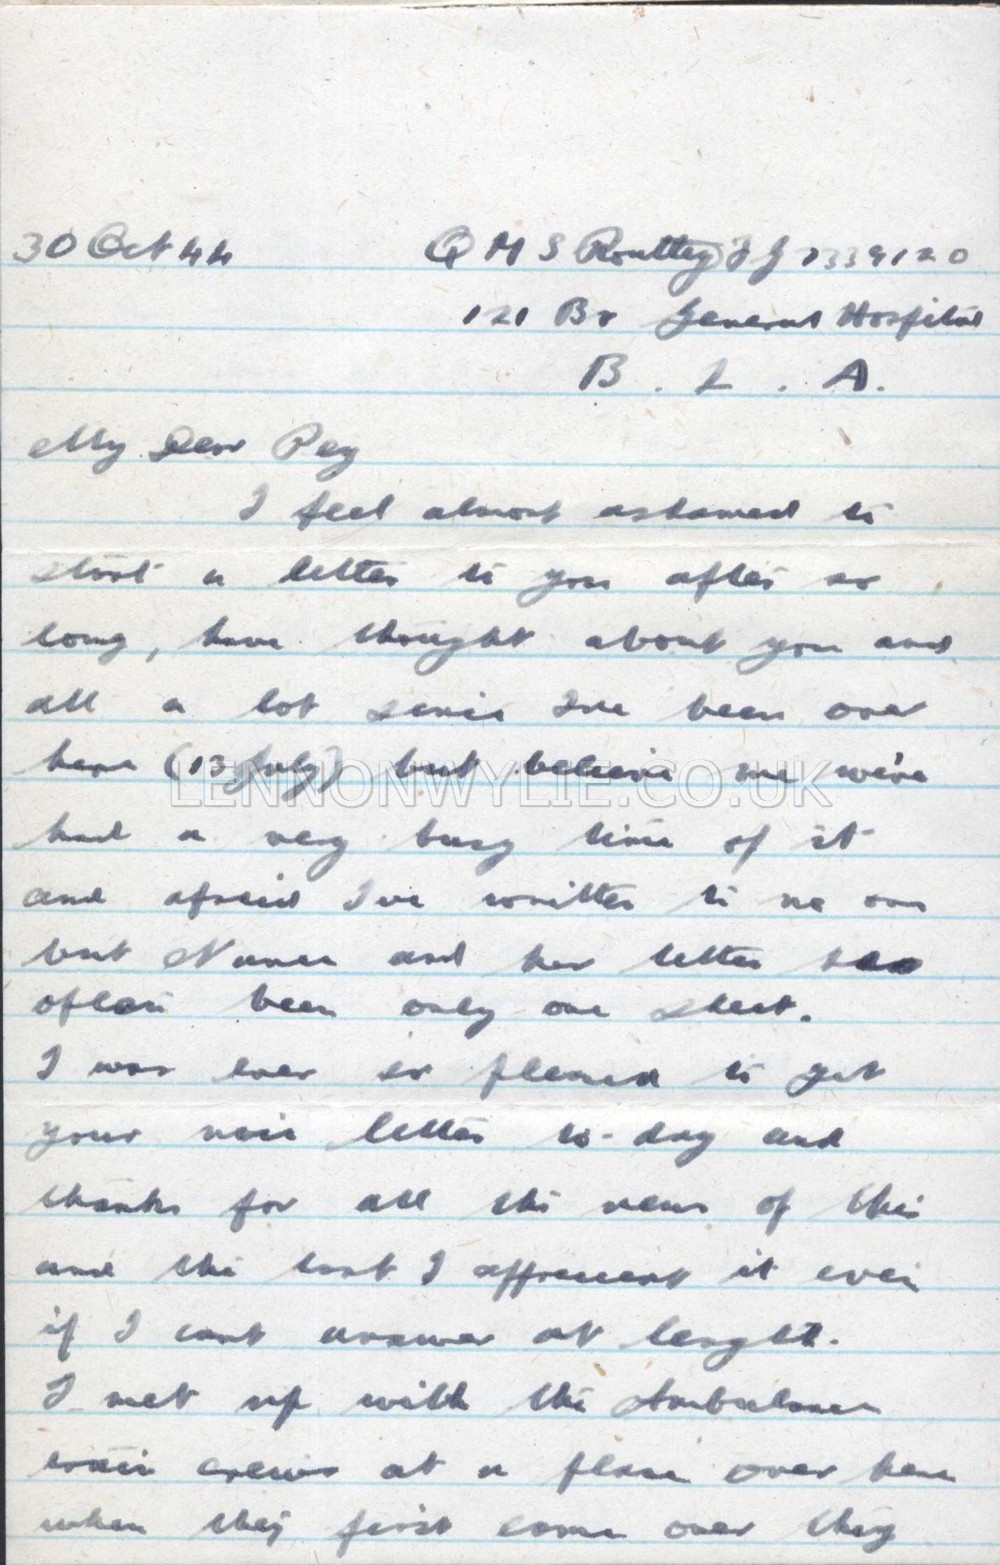 30 Oct 44 Q M S Routley J J 7339120
121 Br General Hospital
B. L. A.
My Dear Peg
I feel almost ashamed to
start a letter to you after so
long, have thought about you and
all a lot since I've been over
here (13 July) but believe me we've
had a very busy time of it
and afraid I've written to no one
but Nance and her letter has
often been only one sheet.
I was ever so pleased to get
your nice letter to-day and
thanks for all the news of this
and the last I appreciate it even
if I cant answer at lenght.
I met up with the Ambulance
train crews at a place over here
when they first come over they
LENNONWYLIE.CO.UK